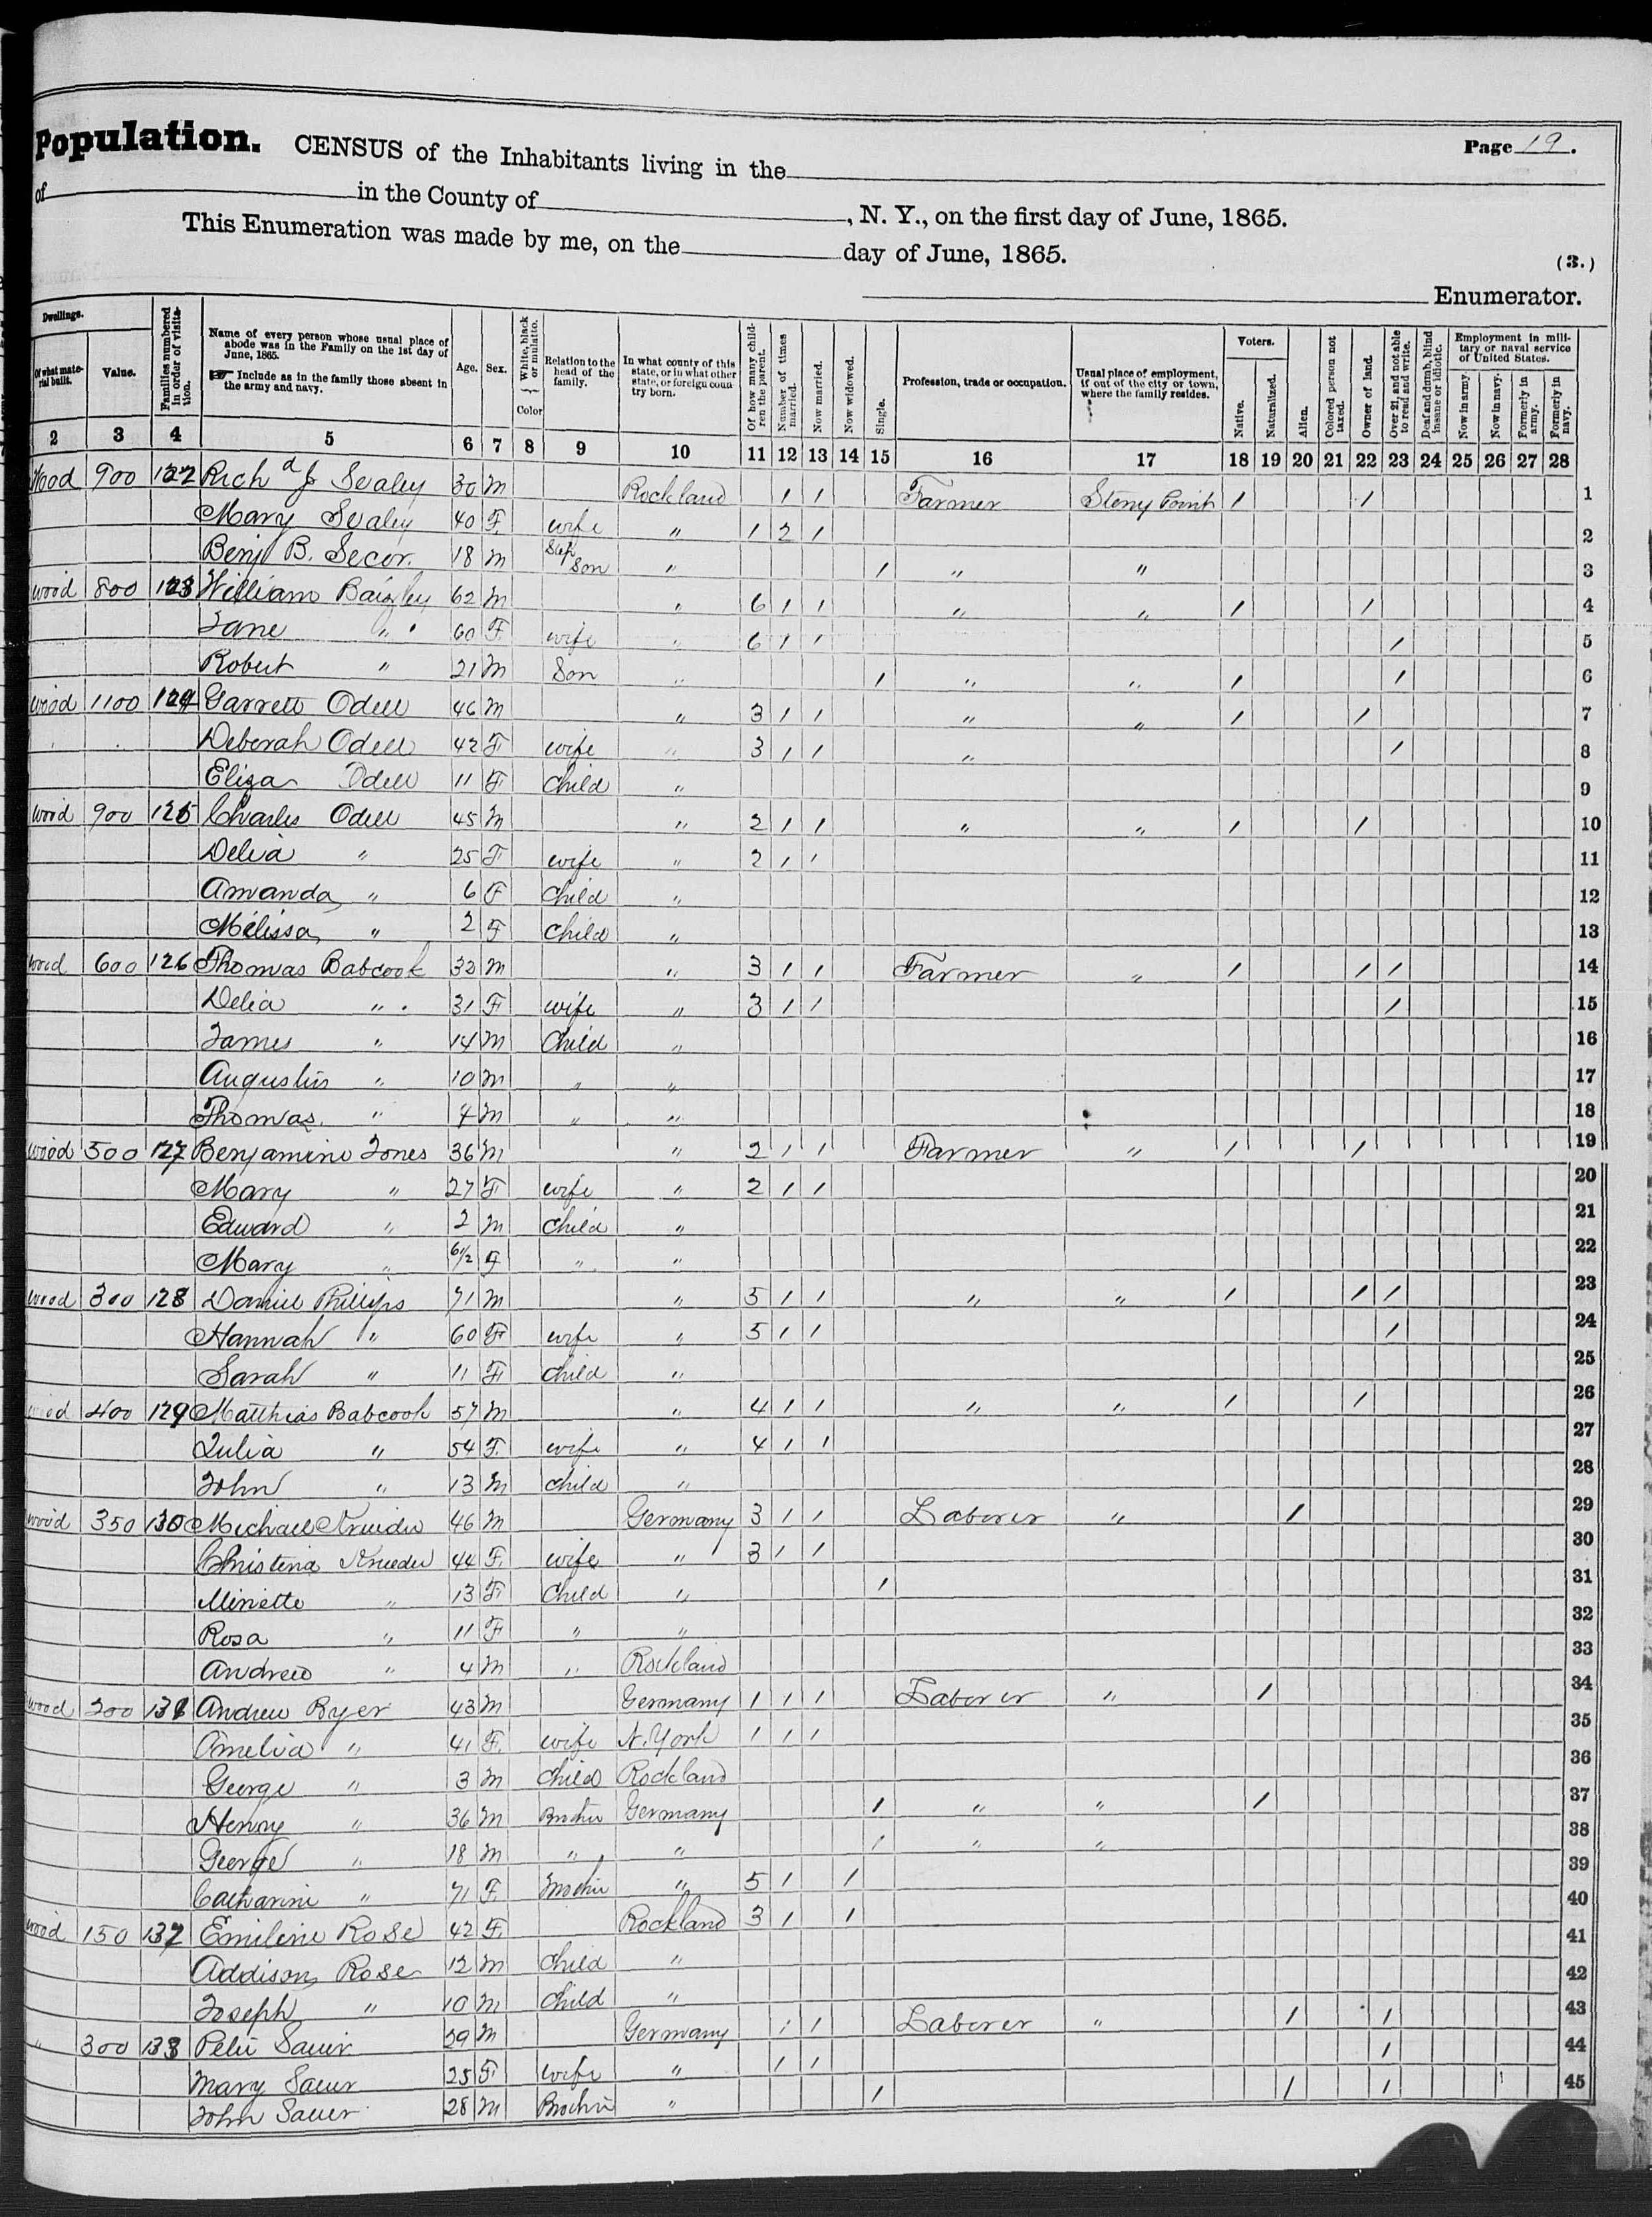 Population. CENSUS of the Inhabitants living in the Page 19.
of in the County of , N. Y., on the first day of June, 1865.
This Enumeration was made by me, on the day of June, 1865.
(3.)
Enumerator.
Dwellings. Of what material built. Value. Families numbered in order of visitation. Name of every person whose usual place of abode was in the Family on the 1st day of June, 1865. ☞ Include as in the family those absent in the army and navy. Age. Sex. White, black or mulatto. } Color Relation to the head of the family. In what county of this state, or in what other state, or foreign country born. Of how many children the parent. Number of times married. Now married. Now widowed. Single. Profession, trade or occupation. Usual place of employment, if out of the city or town, where the family resides. Voters. Native. Naturalized. Alien. Colored person not taxed. Owner of land. Over 21, and not able to read and write. Deaf and dumb, blind insane or idiotic. Employment in military or naval service of United States. Now in army. Now in navy. Formerly in army. Formerly in navy.
2 3 4 5 6 7 8 9 10 11 12 13 14 15 16 17 18 19 20 21 22 23 24 25 26 27 28
Wood 900 122 Richd J Sealey 30 M Rockland 1 1 Farmer Stony Point 1 1 1
Mary Sealey 40 F. wife " 1 2 1 2
Benj B. Secor. 18 M Step Son " 1 " " 3
Wood 800 123 William Baizley 62 M " 6 1 1 " " 1 1 4
Jane " 60 F wife " 6 1 1 1 5
Robert " 21 M Son " 1 " " 1 1 6
Wood 1100 124 Garrett Odell 46 M " 3 1 1 " " 1 1 7
Deborah Odell 42 F wife " 3 1 1 " 1 8
Eliza Odell 11 F Child " 9
Wood 900 125 Charles Odell 45 M " 2 1 1 " " 1 1 10
Delia " 25 F wife " 2 1 1 11
Amanda " 6 F Child " 12
Melissa " 2 F Child " 13
Wood 600 126 Thomas Babcock 32 M " 3 1 1 Farmer " 1 1 1 14
Delia " 31 F wife " 3 1 1 1 15
James " 14 M Child " 16
Augustus " 10 M " " 17
Thomas " 4 M " " 18
Wood 500 127 Benjamin Jones 36 M " 2 1 1 Farmer " 1 1 19
Mary " 27 F wife " 2 1 1 20
Edward " 2 M Child " 21
Mary " 6/12 F " " 22
Wood 300 128 Daniel Phillips 71 M " 5 1 1 " " 1 1 1 23
Hannah " 60 F wife " 5 1 1 1 24
Sarah " 11 F Child " 25
Wood 400 129 Matthias Babcock 57 M " 4 1 1 " " 1 1 26
Julia " 54 F. wife " 4 1 1 27
John " 13 M Child " 28
Wood 350 130 Michael 46 M Germany 3 1 1 Laborer " 1 29
Christina 44 F. wife " 3 1 1 30
Minette " 13 F Child " 1 31
Rosa " 11 F " " 32
Andrew " 4 M " Rockland 33
Wood 200 131 Andrew Byer 43 M Germany 1 1 1 Laborer " 1 34
Amelia " 41 F. wife N. York 1 1 1 35
George " 3 M Child Rockland 36
Henry " 36 M Brother Germany 1 " " 1 37
George " 18 M " " 1 " " 38
Catharine " 71 F. Mother " 5 1 1 39
Wood 150 132 Emiline Rose 42 F. Rockland 3 1 1 40
Addison Rose 12 M Child " 41
Joseph " 10 M Child " 42
" 300 133 Peter Sauer 29 M Germany 1 1 Laborer " 1 1 43
Mary Sauer 25 F wife " 1 1 1 44
John Sauer 28 M Brother " 1 1 1 45